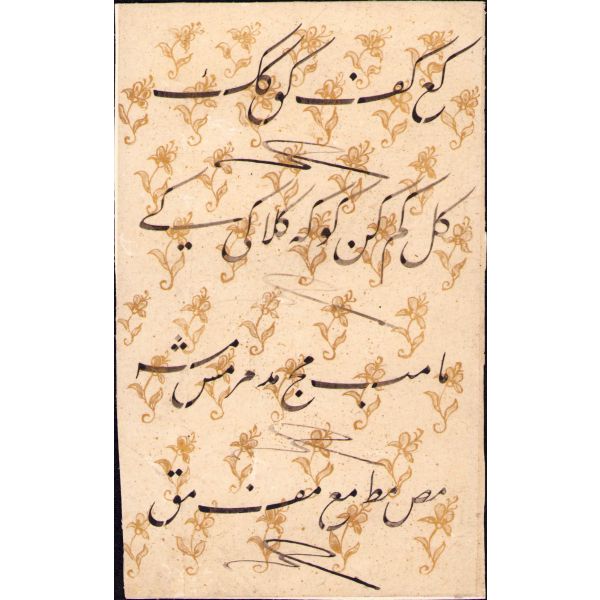 کع کف کق کک
کل کم کن کو که کلا کی کے
ما مب مج مد مر مس مش
مص مط مع مف مق